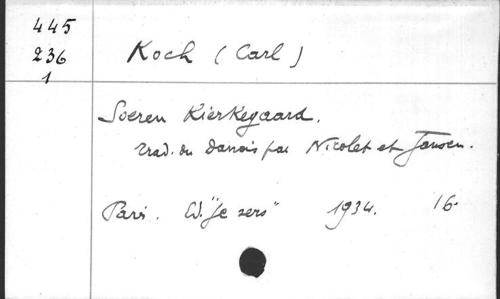 445
236
1
Koch (Carl)
Soeren Kierkegaard.
trad. du danois par Nicolet et Jansen.
Paris. Ed. "Je sers" 1934. 16°